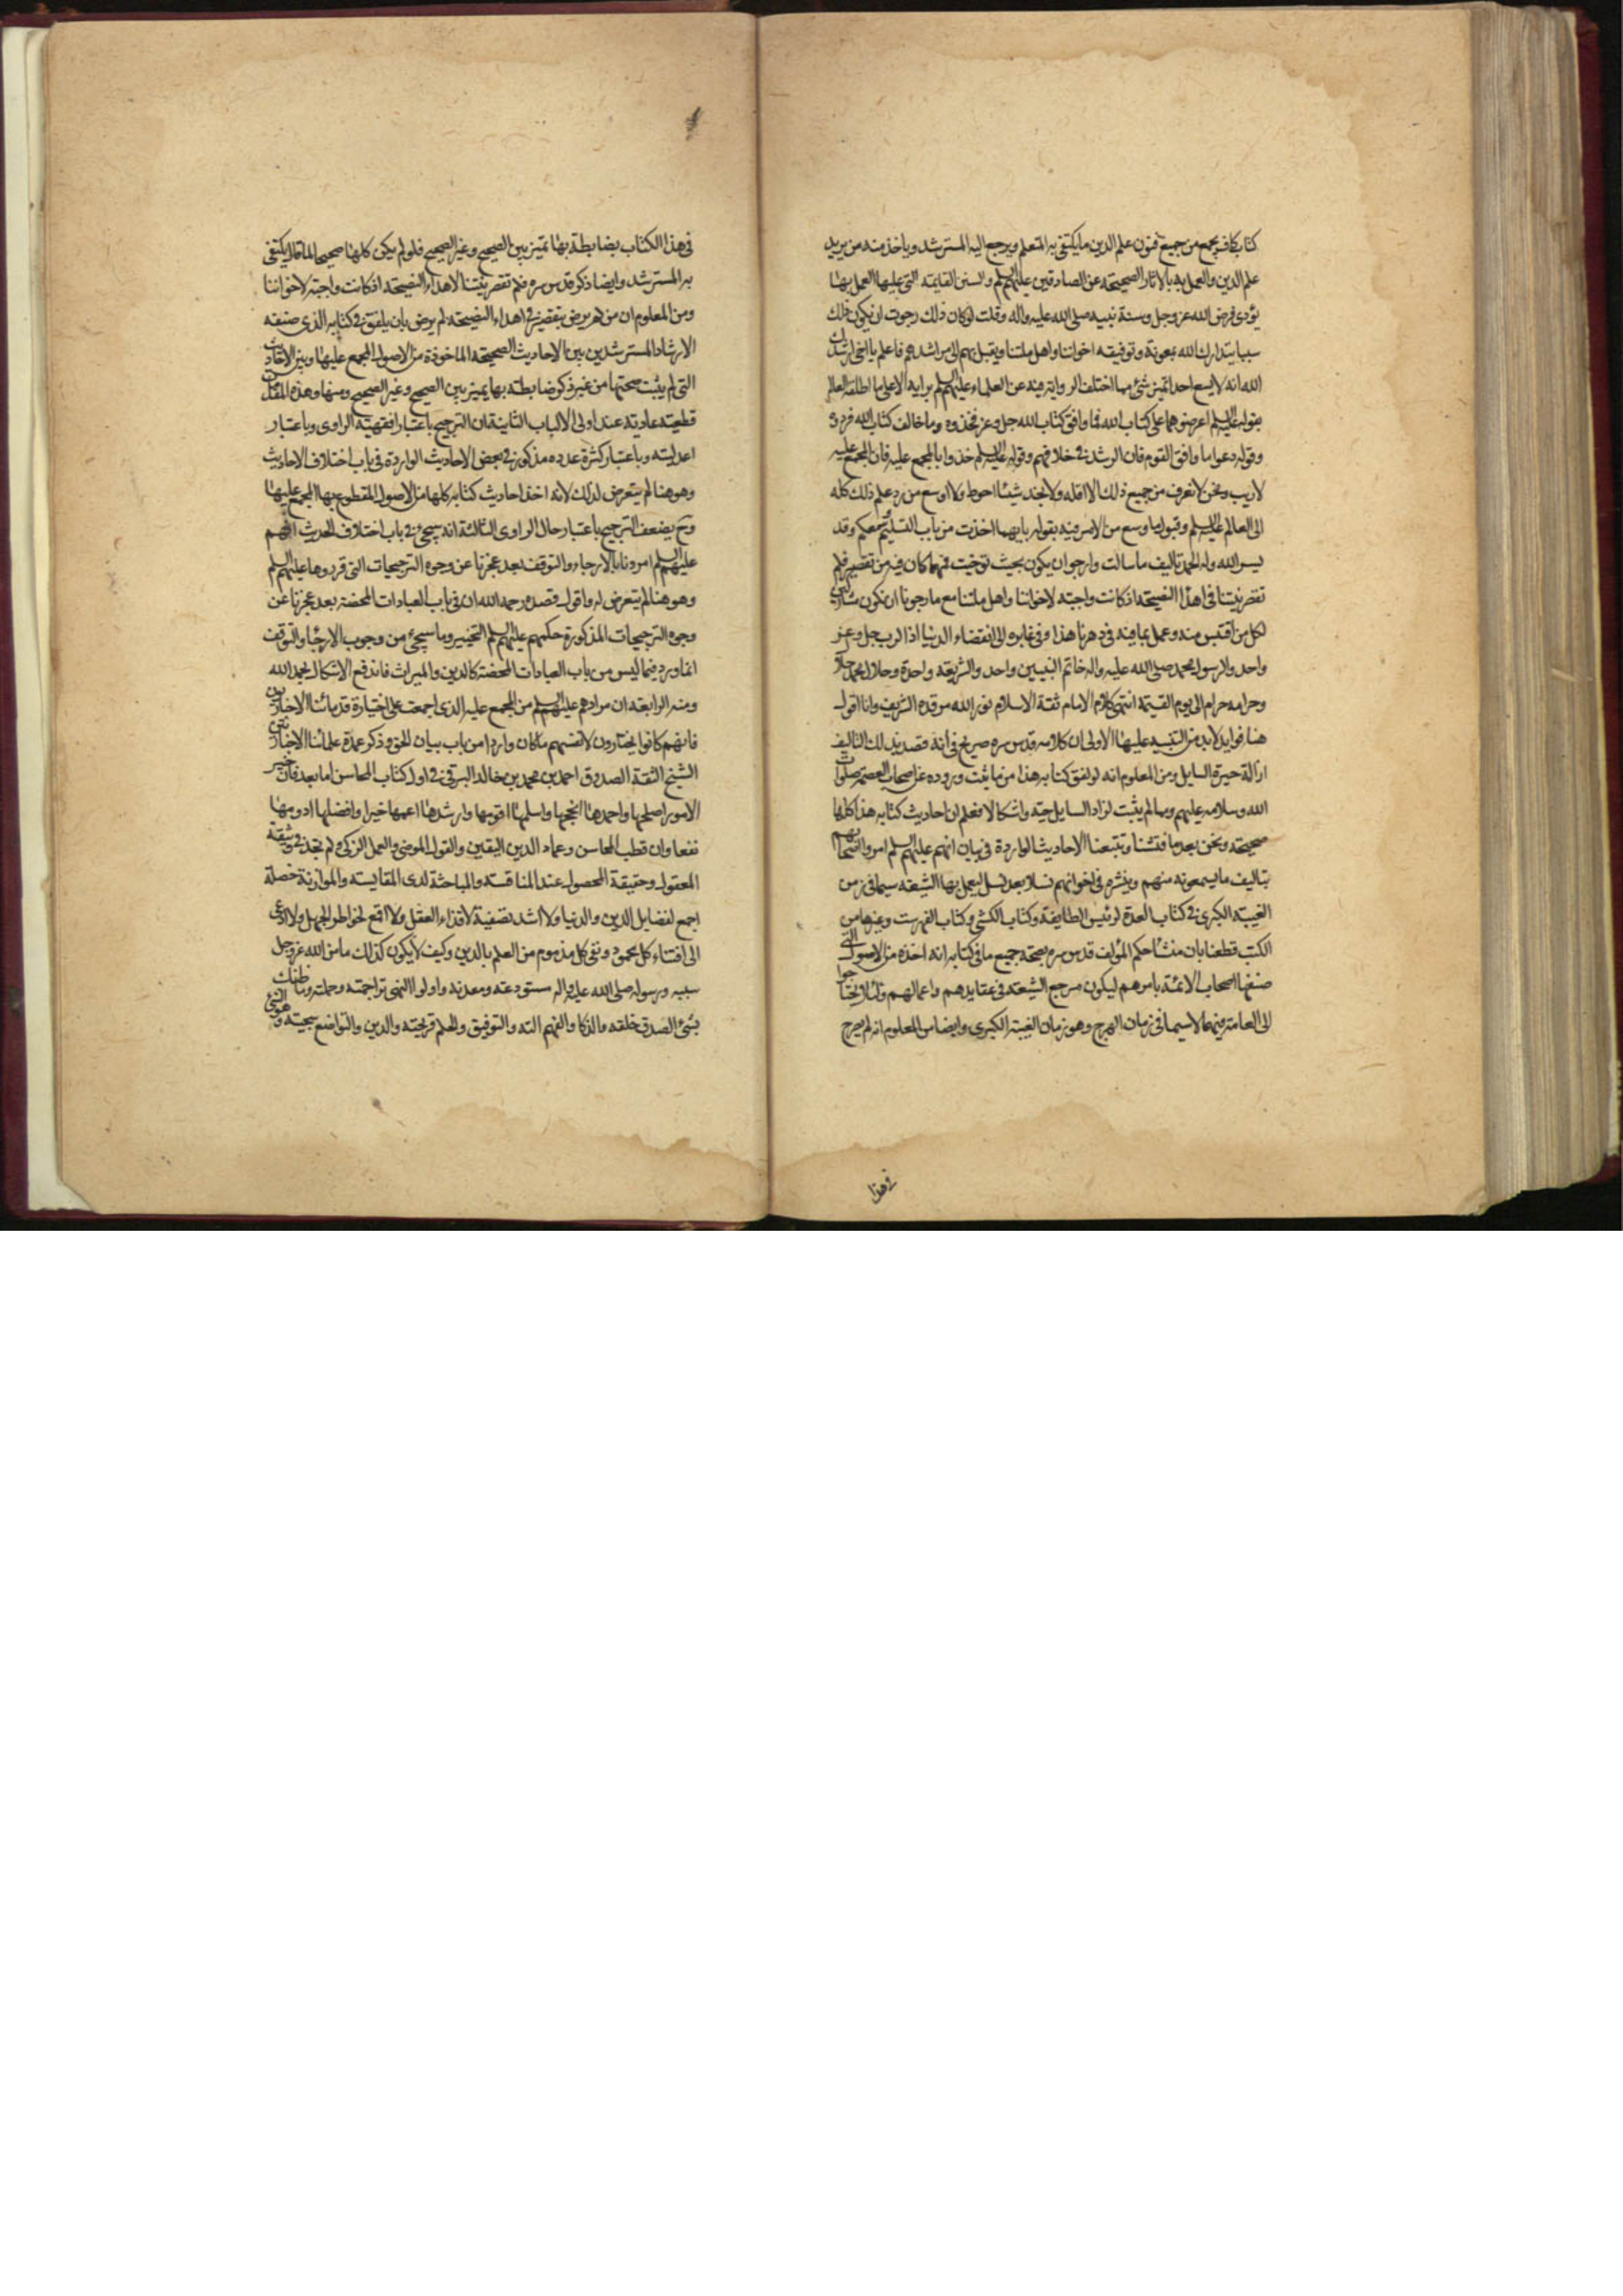 كتاب كاف يجمع من جميع فنون علم الدين ما يكتفى به المتعلم ويرجع اليه المسترشد وياخذ منه من يريد
علم الدين والعمل به بالاثار الصحيحة عن الصادقين عليهم السلم والسنن القايمة التى عليها العمل بها
يؤدى فرض الله عز وجل وسنة نبيه صلى الله عليه واله وقلت لو كان ذلك رجوت ان يكون ذلك
سببا يتدارك الله بمعونة وتوفيقه اخواننا واهل ملتنا ويقبل بهم الى مراشدهم فاعلم يا اخى ارشدك
الله انه لا يسع احدا تميز شئ مما اختلف الرواية فيه عن العلماء عليهم السلم برايه الا على ما اطلقه العالم
بقوله عليه السلم اعرضوهما على كتاب الله فما وافق كتاب الله جل وعز فخذوه وما خالف كتاب الله فردوه
وقوله دعوا ما وافق القوم فان الرشد فى خلافهم وقوله عليه السلم خذوا بالمجمع عليه فان المجمع عليه
لا ريب ونحن لا نعرف من جميع ذلك الا اقله ولا نجد شيئا احوط ولا اوسع من رد علم ذلك كله
الى العالم عليه السلم وقبول ما وسع من الامر فيه بقوله بايهما اخذت من باب التسليم وسعكم وقد
يسر الله وله الحمد تاليف ما سالت وارجو ان يكون بحيث توخيت فمهما كان فيه من تقصير فلم
تقصر نيتنا فى اهداء النصيحة اذ كانت واجبة لاخواننا واهل ملتنا مع ما رجونا ان نكون مشاركين
لكل من اقتبس منه وعمل بما فيه فى دهرنا هذا وفى غابره الى انقضاء الدنيا اذ الرب جل وعز
واحد والرسول محمد صلى الله عليه واله خاتم النبيين واحد والشريعة واحدة وحلال محمد حلال
وحرامه حرام الى يوم القيمة انتهى كلام الامام ثقة الاسلام نور الله مرقده الشريف وانا اقول
هنا فوايد لابد من التنبيه عليها الاولى ان كلامه قدس سره صريح فى انه قصد بذلك التاليف
ازالة حيرة السايل ومن المعلوم انه لو لفق كتابه هذا من ما ثبت وروده عن اصحاب العصمة صلوات
الله وسلامه عليهم ومما لم يثبت لزاد السايل حيرة واشكالا فعلم ان احاديث كتابه هذا كلها
صحيحة ونحن بعد ما فتشنا وتتبعنا الاحاديث الواردة فى بيان انهم عليهم السلم امروا اصحابهم
بتاليف ما يسمعونه منهم وينشره فى اخوانهم نسلا بعد نسل ليعمل بها الشيعة سيما فى زمن
الغيبة الكبرى فى كتاب العدة لرئيس الطايفة وكتاب الكشى وكتاب الفهرست وغيرها من
الكتب قطعنا بان منشا حكم المؤلف قدس سره بصحة جميع ما فى كتابه انه اخذه من الاصول التى
صنفها اصحاب الائمة بامرهم ليكون مرجع الشيعة فى عقايدهم واعمالهم ولئلا يحتاجوا
الى العامة فيهما لا سيما فى زمان الهرج وهو زمان الغيبة الكبرى وايضا من المعلوم انه لم يصرح
فى هذا
فى هذا الكتاب بضابطة بها تميز بين الصحيح وغير الصحيح فلو لم يكن كلها صحيحا لما قال يكتفى
به المسترشد وايضا ذكر قدس سره فلم تقصر نيتنا لاهداء النصيحة اذ كانت واجبة لاخواننا
ومن المعلوم ان من لم يرض بتقصير فى اهداء النصيحة لم يرض بان يلفق فى كتابه الذى صنفه
الارشاد المسترشدين بين الاحاديث الصحيحة الماخوذة من الاصول المجمع عليها وبين الاحاديث
التى لم يثبت صحتها من غير ذكر ضابطة بها يميز بين الصحيح وغير الصحيح ومنها وهذه المقدمات
قطعية عادية عند اولى الالباب الثانية ان الترجيح باعتبار افقهية الراوى وباعتبار
اعدليته وباعتبار كثرة عدده مذكور فى بعض الاحاديث الواردة فى باب اختلاف الاحاديث
وهو هنا لم يتعرض لذلك لانه اخذ احاديث كتابه كلها من الاصول المقطوع بها المجمع عليها
وح يضعف الترجيح باعتبار حال الراوى الثالثة انه سيجئ فى باب اختلاف الحديث انهم
عليهم السلم امرونا بالارجاء والتوقف بعد عجزنا عن وجوه الترجيحات التى قرروها عليهم السلم
وهو هنا لم يتعرض له واقول قصده رحمه الله ان فى باب العبادات المحضة بعد عجزنا عن
وجوه الترجيحات المذكورة حكمهم عليهم السلم التخيير وما سيجئ من وجوب الارجاء والتوقف
انما ورد فيما ليس من باب العبادات المحضة كالدين والميراث فاندفع الاشكال بحمد الله
ومنه الرابعة ان مرادهم عليهم السلم من المجمع عليه الذى اجمعت على اختياره قدمائنا الاخباريين
فانهم كانوا يختارون لانفسهم ما كان واردا من باب بيان الحق وذكر عمدة علمائنا الاخباريين
الشيخ الثقة الصدوق احمد بن محمد بن خالد البرقى فى اول كتاب المحاسن اما بعد فان خير
الامور اصلحها واحمدها انجحها واسلمها اقومها وارشدها اعمها خيرا وافضلها ادومها
نفعا وان قطب المحاسن وعماد الدين اليقين والقول المرضى والعمل الزكى ولم نجد فى وثيقة
المعقول وحقيقة المحصول عند المناقسة والمباحثة لدى المقايسة والموازنة خصلة
اجمع لفضايل الدين والدنيا ولا اشد تصفية لاقذاء العقل ولا اقمع لخواطر الجهل ولا ادعى
الى اقتناء كل محمود ونفى كل مذموم من العلم بالدين وكيف لا يكون كذلك ما من الله عز وجل
سببه ورسوله صلى الله عليه واله مستودعه ومعدنه واولوا النهى تراجمته وحملته وما ظنك
بشئ الصدق خلقه والذكا والفهم الته والتوفيق والحلم قريحته والدين والتواضع سجيته وهو الشئ